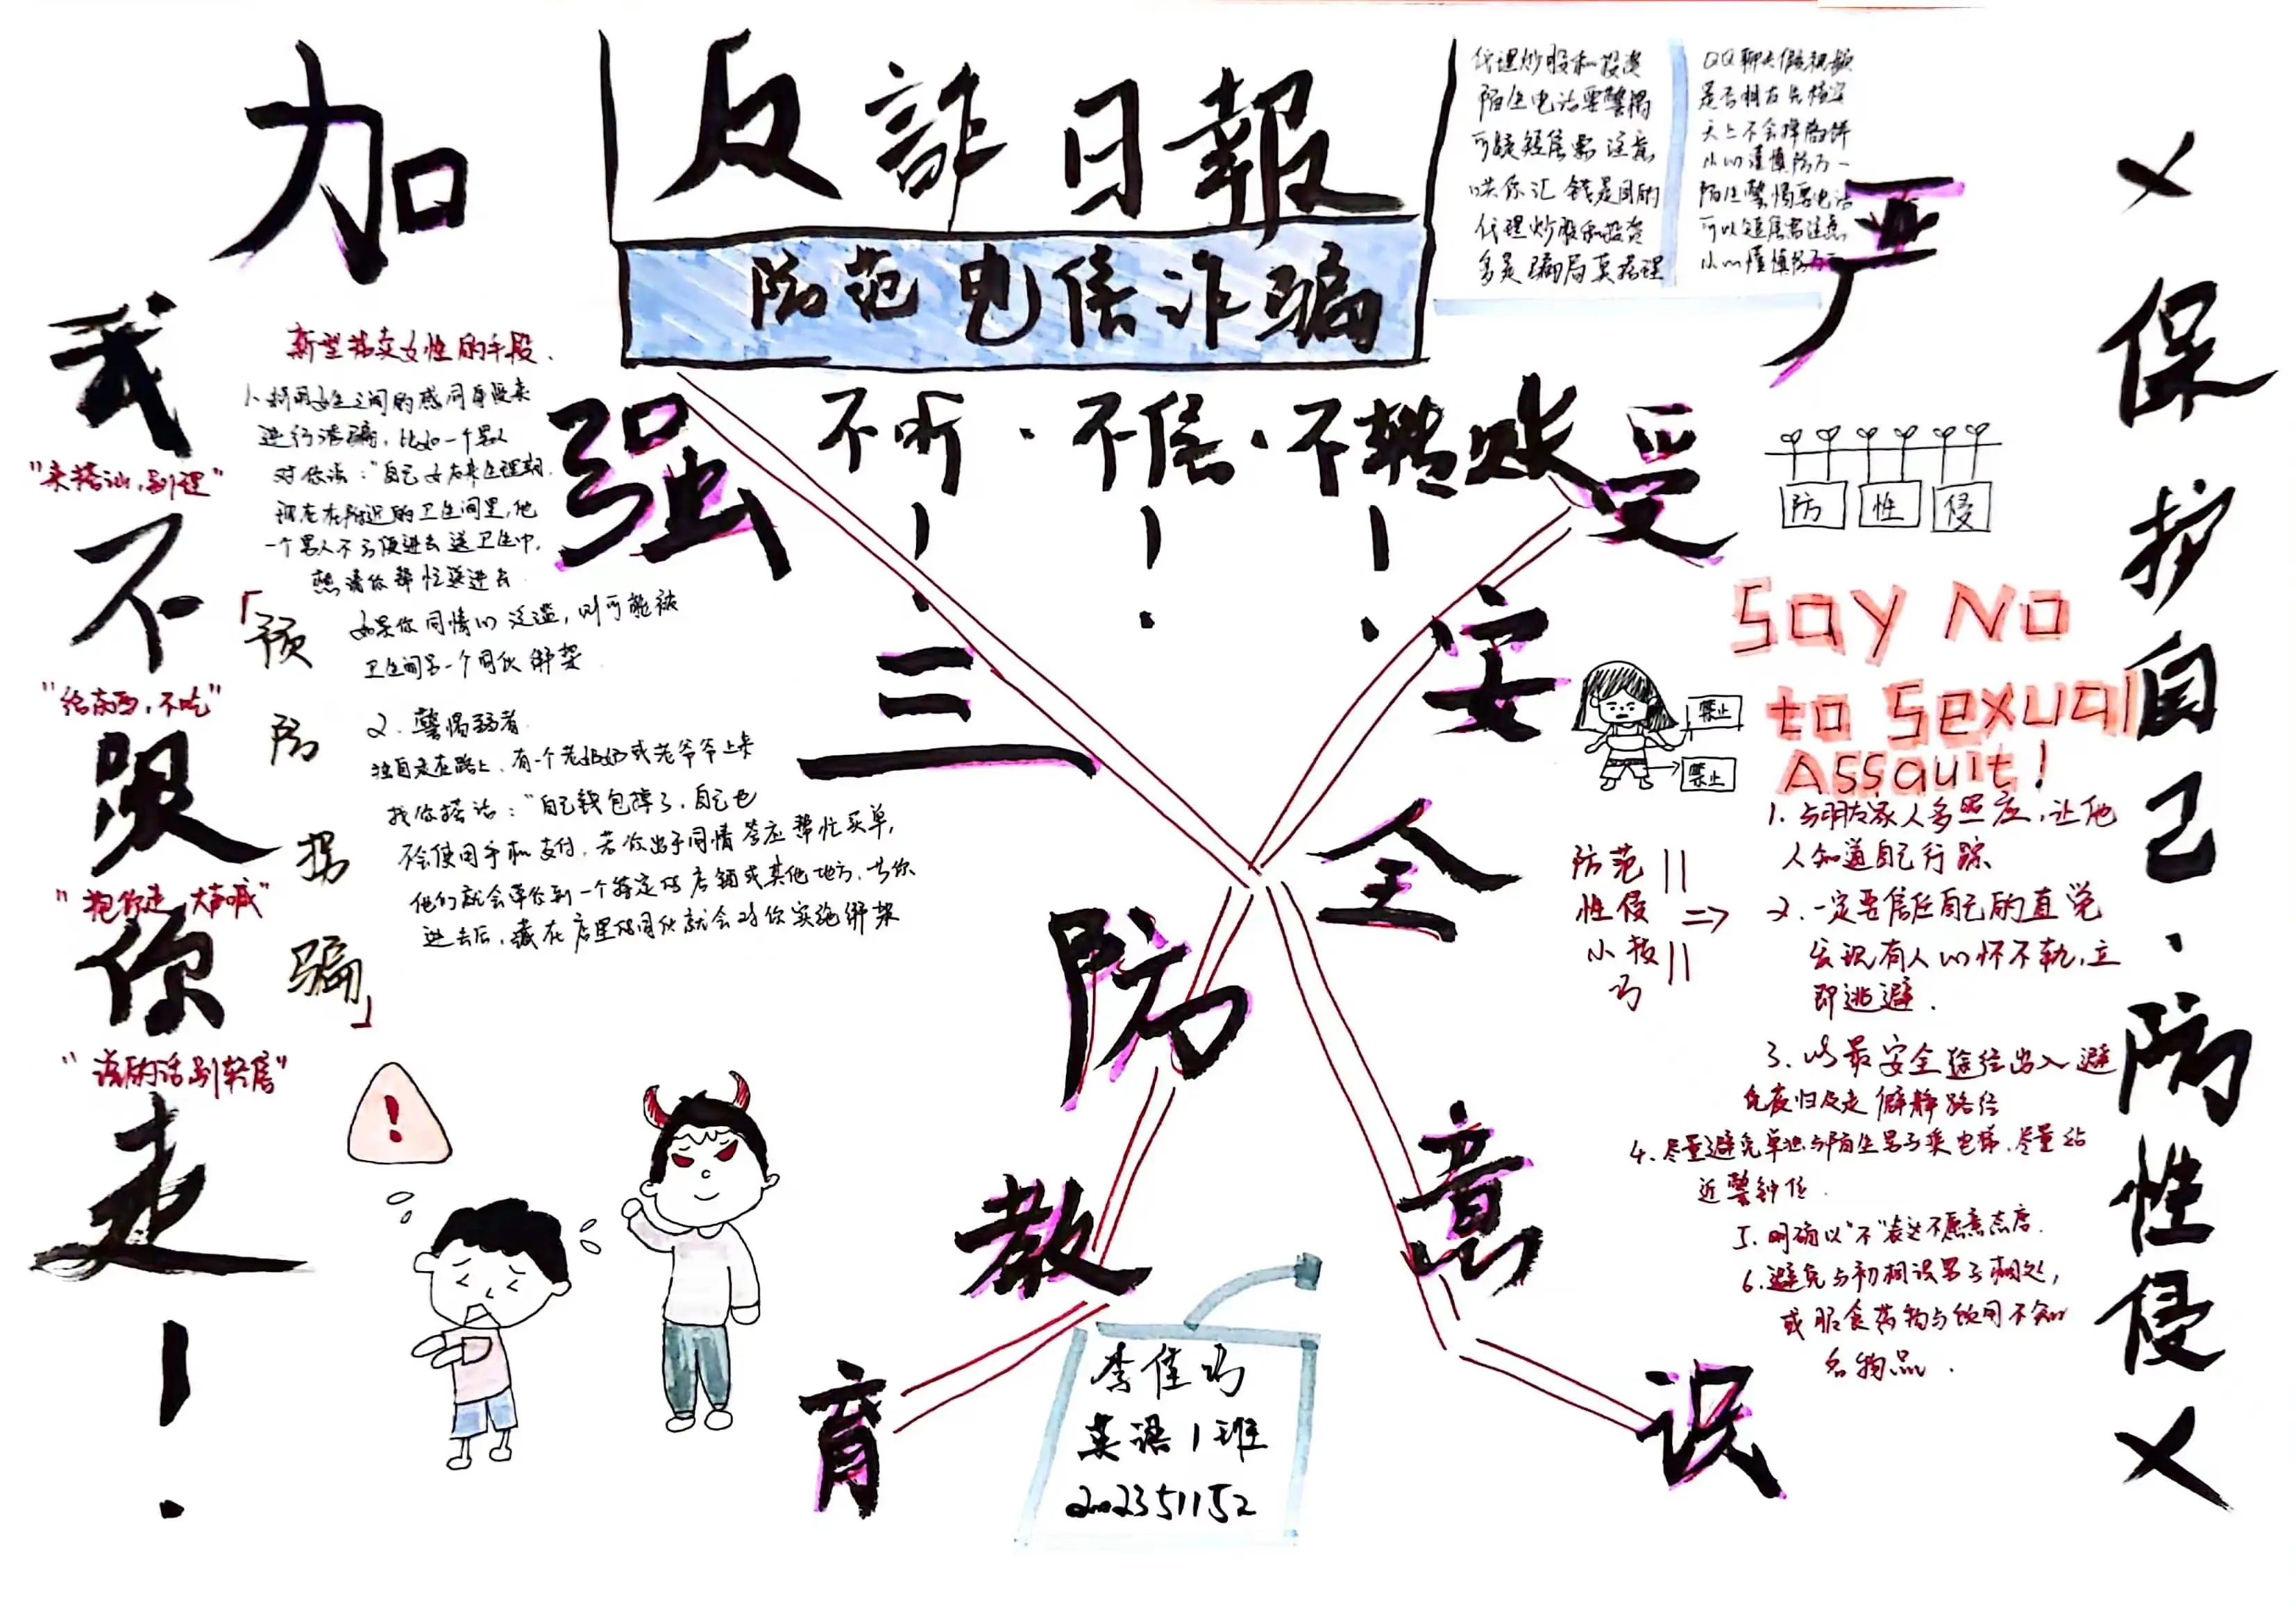 反詐日報
防范电信诈骗
不听·不信·不转账
！！！
代理炒股和投资
陌生电话要警惕
可疑短信需注意
哄你汇钱是目的
代理炒股和投资
多是骗局莫搭理
QQ聊天假视频
是否朋友先核实
天上不会掉馅饼
小心谨慎防万一
陌生警惕要电话
可以短信需注意
小心谨慎防万一
加强三防教育
严受安全意识
我不跟你走！
"来搭讪，别理"
"给东西，不吃"
"抱你走，大声喊"
"说的话别轻信"
「预防拐骗」
新型拐卖女性的手段．
1、利用女生之间的感同身受来
进行诱骗，比如一个男人
对你说："自己女友来生理期．
现在在附近的卫生间里，他
一个男人不方便进去送卫生巾，
想请你帮忙送进去
如果你同情心泛滥，则可能被
卫生间另一个同伙绑架
2．警惕弱者．
独自走在路上，有一个老奶奶或老爷爷上来
找你搭话："自己钱包掉了，自己也
不会使用手机支付，若你出于同情答应帮忙买单，
他们就会带你到一个特定的店铺或其他地方，当你
进去后，藏在店里的同伙就会对你实施绑架
!
防 性 侵
Say No
to Sexual
Assauit!
禁止
禁止
防范
性侵
小技
巧
1．与朋友家人多照应，让他
人知道自己行踪
2．一定要信任自己的直觉
发现有人心怀不轨，立
即逃避．
3．以最安全途径出入避
免夜归及走僻静路径
4．尽量避免单独与陌生男子乘电梯，尽量站
近警钟位．
5．明确以"不"表达不愿意态度．
6．避免与初相识男子相处，
或服食药物与饮用不知
名物品．
×保护自己·防性侵×
李佳巧
英语1班
202351152